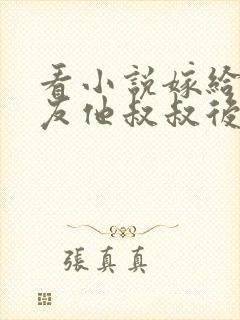 看小說嫁給
友他叔叔後
張真真